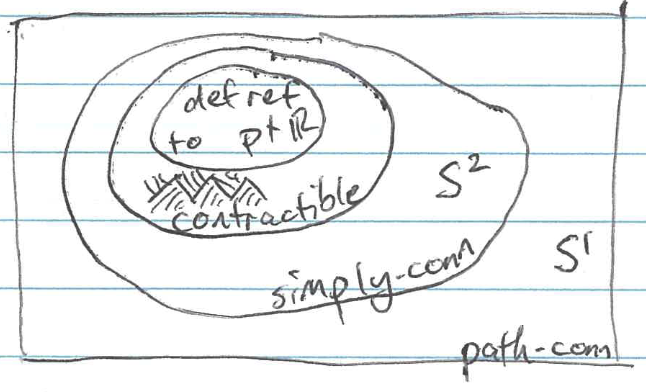 def ret
to pt ℝ
contractible
S²
simply-conn
S¹
path-conn